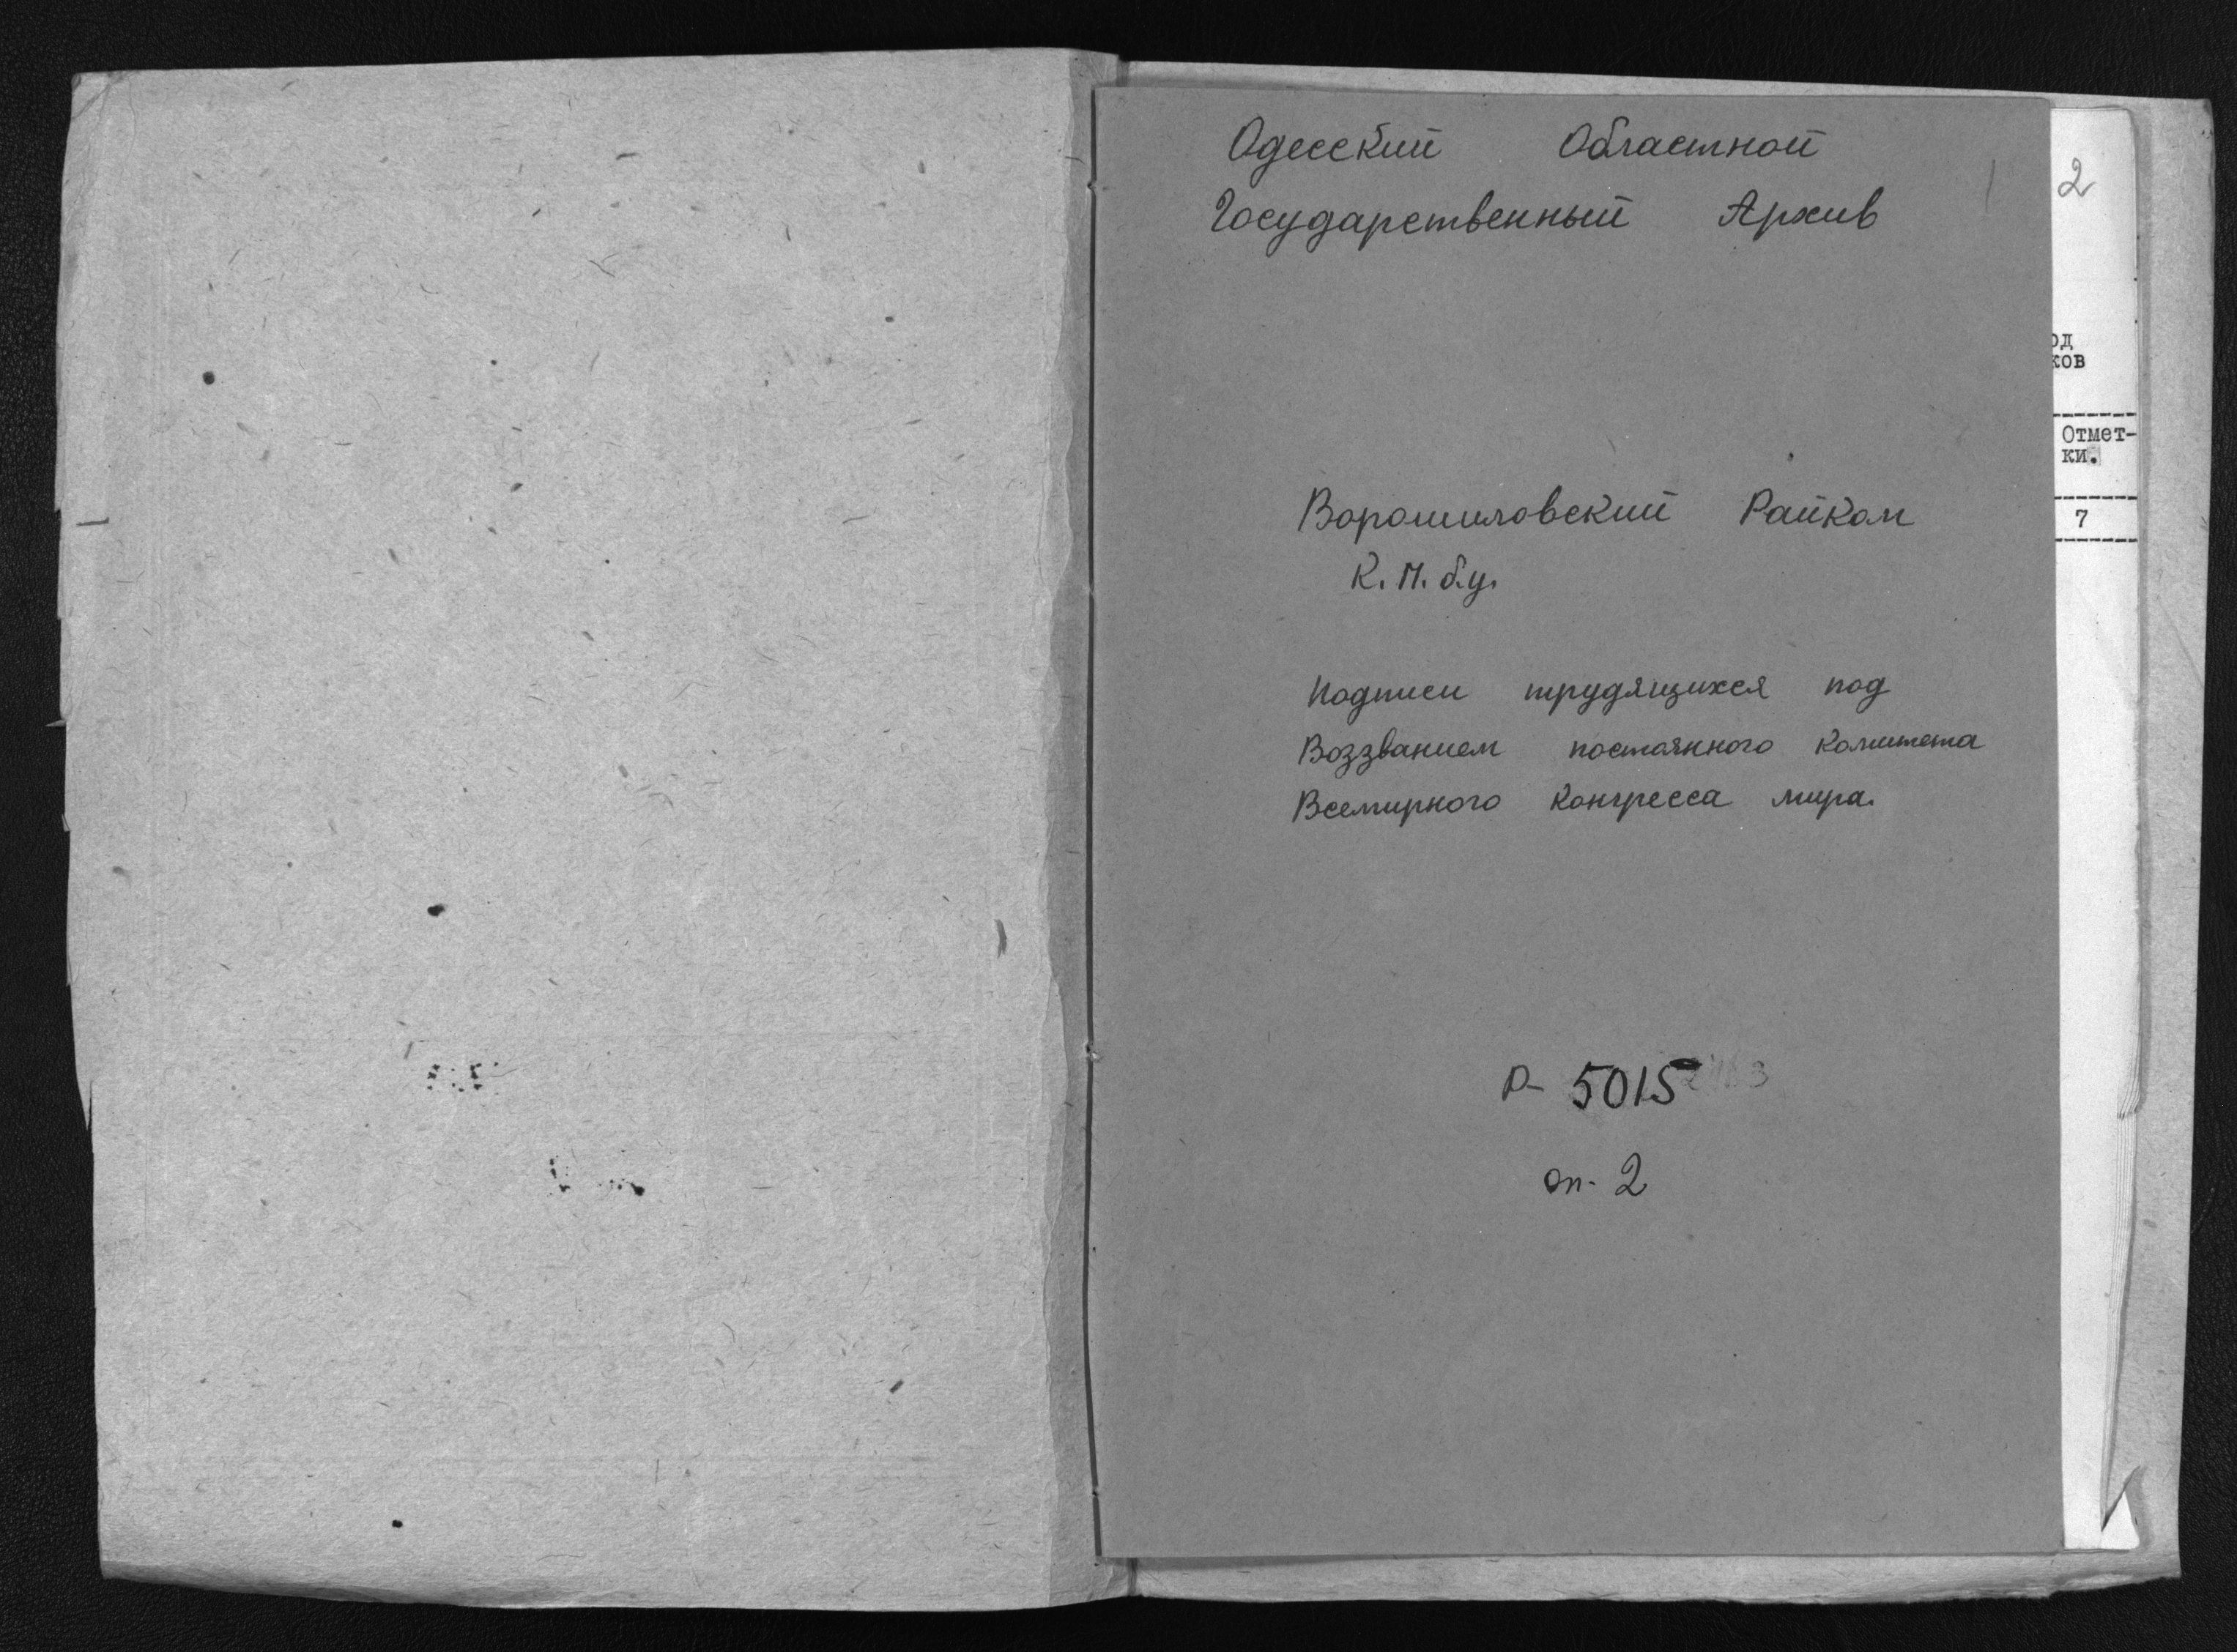 Одесский Областной
Государственный Архив
1
Ворошиловский Райком
К. П. б.у.
Подписи трудящихся под
Воззванием постоянного комитета
Всемирного конгресса мира.
Р- 5015
оп- 2
2
од
ков
Отмет-
ки.
7